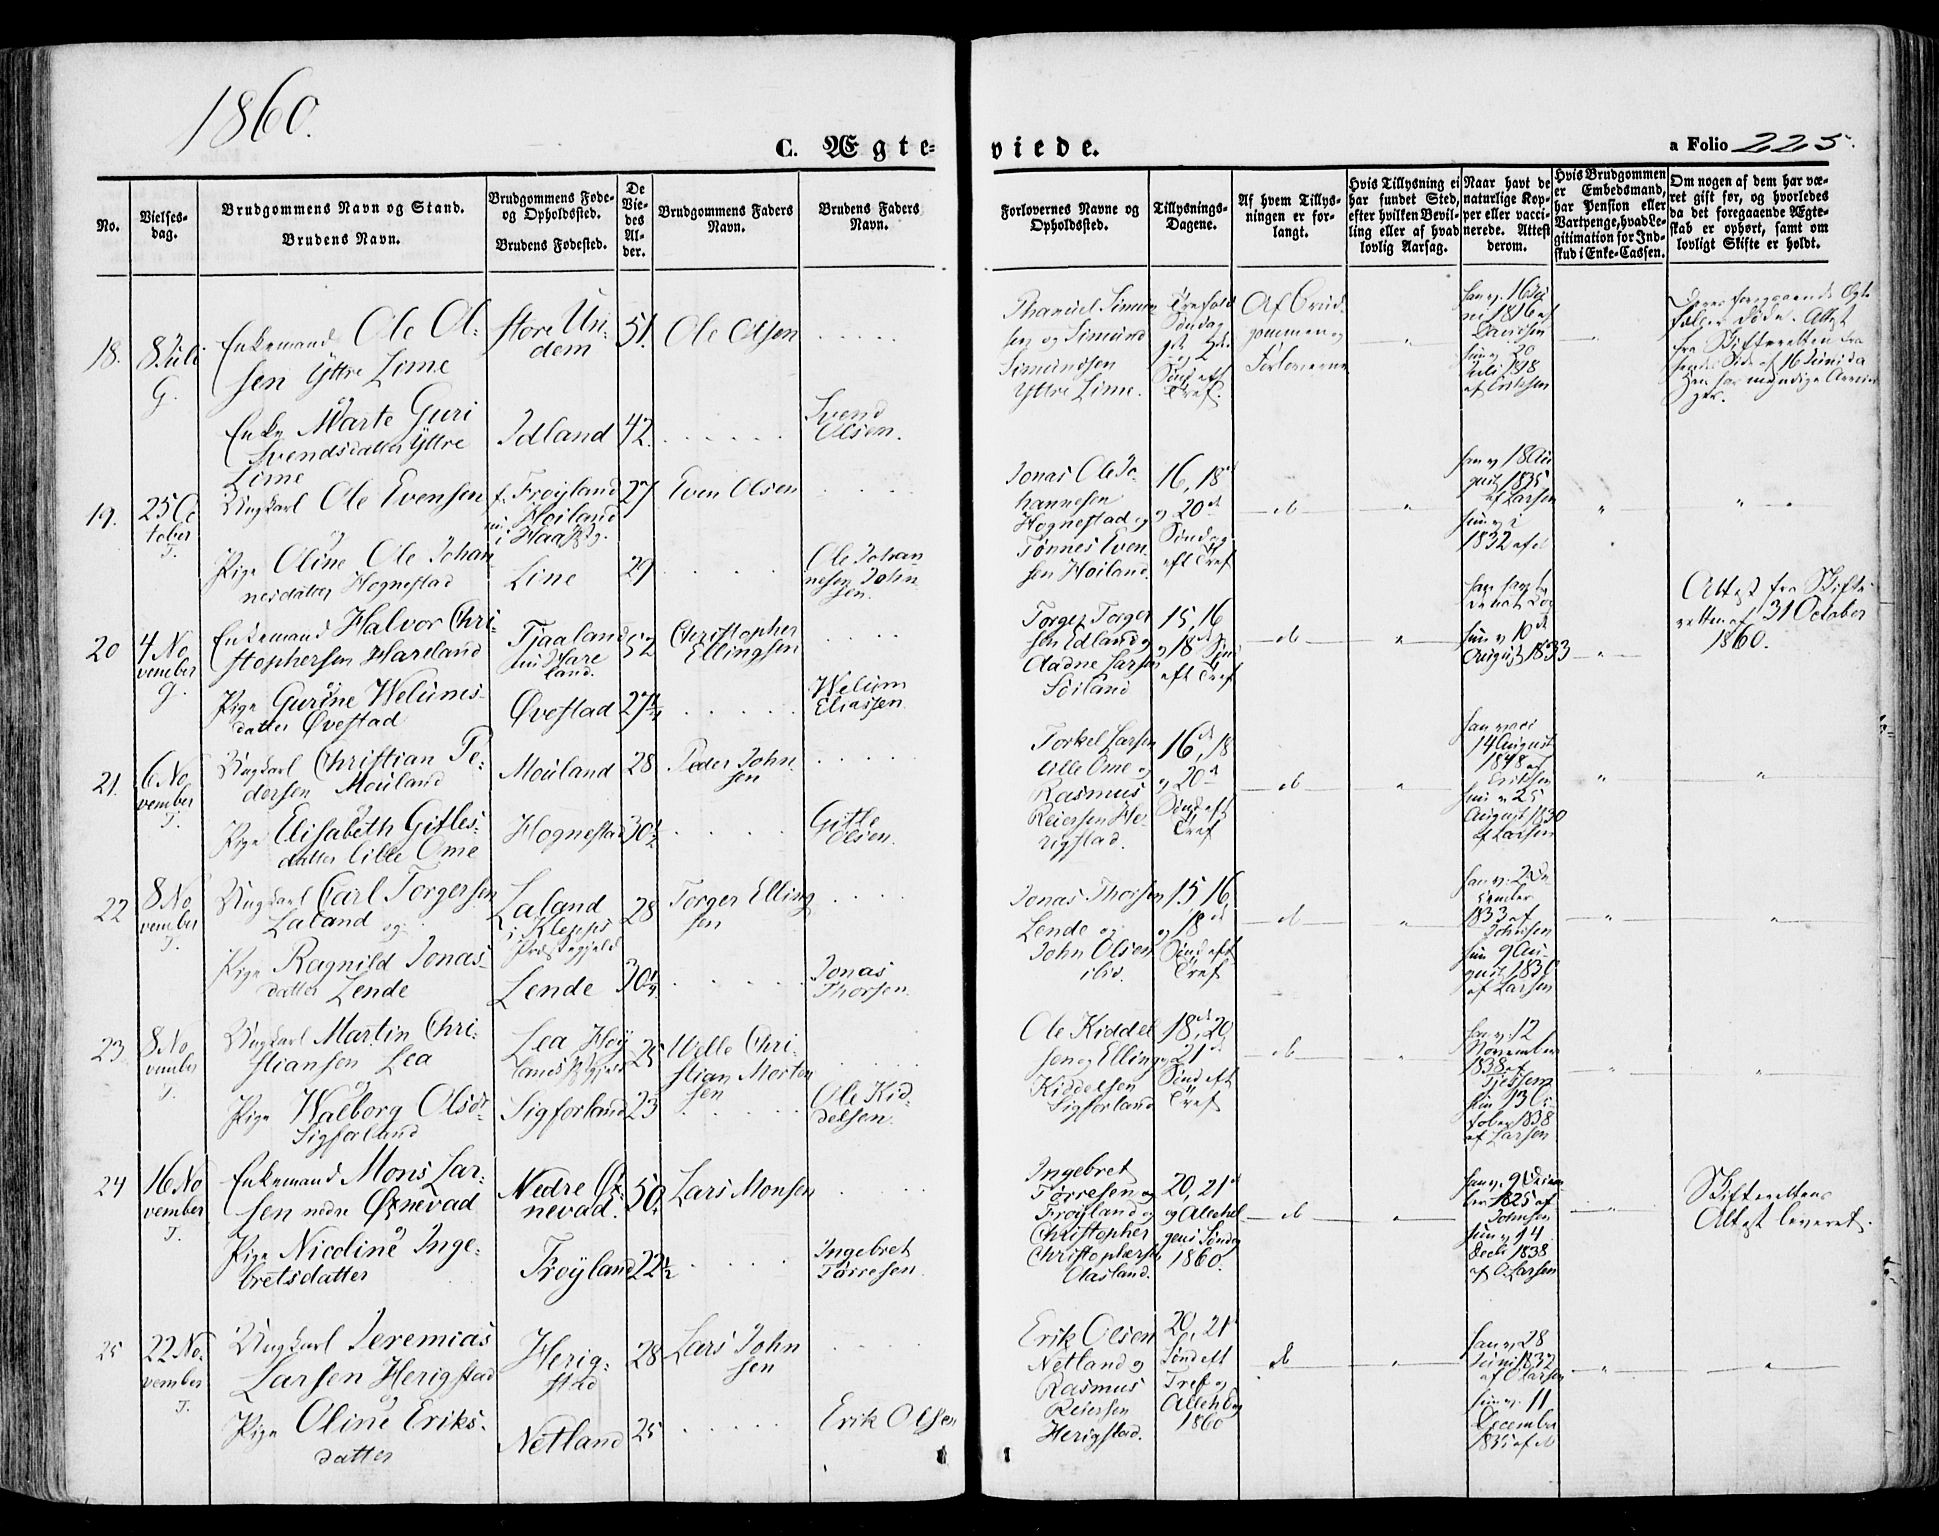 1860.
C. Ægte=
viede.
a Folio 225.
No.
Vielses-
dag.
Brudgommens Navn og Stand.
Brudens Navn.
Brudgommens Føde-
og Opholdssted.
Brudens Fødested.
De
Vie-
des
Al-
der.
Brudgommens Faders
Navn.
Brudens Faders
Navn.
Forlovernes Navne og
Opholdssted.
Tillysnings-
Dagene.
Af hvem Tillys-
ningen er for-
langt.
Hvis Tillysning ei
har fundet Sted,
efter hvilken Bevil-
ling eller af hvad
lovlig Aarsag.
Naar havt de
naturlige Kop-
per eller vacci-
nerede. Attest
derom.
Hvis Brudgommen
er Embedsmand,
har Pension eller
Vartpenge, hvad Le-
gitimation for Ind-
skud i Enke-Cassen.
Om nogen af dem har væ-
ret gift før, og hvorledes
da det foregaaende Ægte-
skab er ophørt, samt om
lovligt Skifte er holdt.
18.
8 Juli
G.
Enkemand Ole Ol-
sen Yttre Lime
og
Enke Marte Guri
Svendsdatter Yttre
Lime
Store Un-
dem
Idland
51.
42.
Ole Olsen
Svend
Olsen.
Thaniel Simon
sen og Simund
Simundsen
Yttre Lime.
Trefold
Søndag
1ste 2de
Sønd eft
Tref.
Af Brud-
gommen og
Forloverne
han v. 16 Ju
ni 1816 af
Davidsen
hun v. 20
Juli 1818
af Eriksen
Deres foregaaende Ægte
fæller døde. Attest
fra Skifteretten fra
hendes Side af 16 Juni da
han har myndige Arvin
ger.
19.
25 Oc
tober
T.
Ungkarl Ole Evensen
og
Pige Oline Ole Johan
nesdatter Hognestad
f. Frøyland
nu Høiland
i Haa Prg.
Line
27
29
Even Olsen
Ole Johan
nesen John
sen.
Jonas Ole Jo-
hannesen
Hognestad og
Tønnes Even
sen Høiland.
16, 18de
og 20de
Søndag
eft Tref
do
han v. 18 Au
gust 1835
af Larsen
hun v. i
1832 af do
20
4 No
vember
G.
Enkemand Halvor Chri-
stophersen Hareland
og
Pige Gurine Welums-
datter Øvestad
Tjaaland
nu Hare
land.
Øvestad
52
27½
Christopher
Ellingsen
Welum
Eliassen
Torger Torger
sen Edland og
Aadne Larsen
Søiland
15, 16
og 18de Sønd
eft Tref
do
hun v. 10de
August 1833
Attest fra Skifte
retten af 31 October
1860.
21.
6 No
vember
T.
Ungkarl Christian Pe-
dersen Mouland
og
Pige Elisabeth Gitles-
datter Lille Ome
Mouland
Hognestad
28
30½
Peder John
sen
Gitle
Olsen.
Torkel Larsen
Lille Ome og
Rasmus
Reiersen He-
rigstad.
16de, 18
og 20de
Sønd eft
Tref
do
14 August
1848 af
Eriksen
hun v. 25
August 1830
af Larsen
22
8 No
vember
T.
Ungkarl Carl Torgersen
Laland og
Pige Ragnild Jonas-
datter Lende
Laland
i Klepps
Præstegjeld
Lende
28
30½
Torger Elling
sen
Jonas
Thorsen.
Jonas Thorsen
Lende og
John Olsen
ibid.
15, 16,
og 18de
Sønd eft
Tref
do
han v. 2 De
cember
1833 af
Johnsen
hun 9 Au-
gust 1830
af Larsen
23.
8 No
vember
T.
Ungkarl Martin Chri-
stiansen Lea
og
Pige Walborg Olsdr
Sigforland
Lea Høy
lands Prgjeld
Sigforland
25
23
Wello Chri-
stian Morten
sen
Ole Kid-
delsen.
Ole Kiddel
sen og Elling
Kiddelsen
Sigforland
18de, 20
og 21de
Sønd eft
Tref
do
han v. 12
November
1838 af
Tjelssem
hun 13 Oc
tober 1838
af Larsen
24
16 No
vember
T.
Enkemand Mons Lar-
sen nedre Øxnevad
og
Pige Nicoline Inge-
bretsdatter
Nedre Øx-
nevad.
Frøyland
50.
22½
Lars Monsen
Ingebret
Tørresen.
Ingebret
Tørresen og
Frøyland og
Christopher
Christophersen
Olasland.
20, 21de
og Allehel
gens Søndag
1860.
do
han v. 9 Decem
ber 1825 af
Johnsen
hun v. 14
Decbr 1838
af O. Larsen
Skifterettens
Attest leveret.
25
22 No-
vember
T.
Ungkarl Jeremias
Larsen Herigstad
og
Pige Oline Eriks-
datter
Herig-
stad
Netland
28
25
Lars John
sen
Erik Olsen
Erik Olsen
Netland og
Rasmus
Reiersen
Herigstad.
20, 21de
Sønd eft
Tref og
Allehlg
1860
do
han v. 28
Juni 1832
af O Larsen
hun v. 11
December
1835 af do